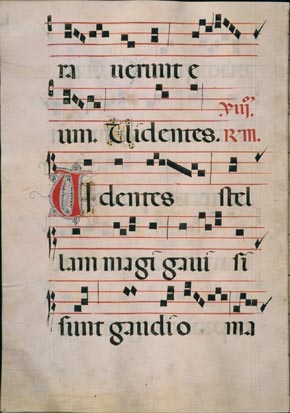 ra uerunt e
um. Uidentes. R̃m.
Uidentes stel
lam magi gaui si
sunt gaudi o ma